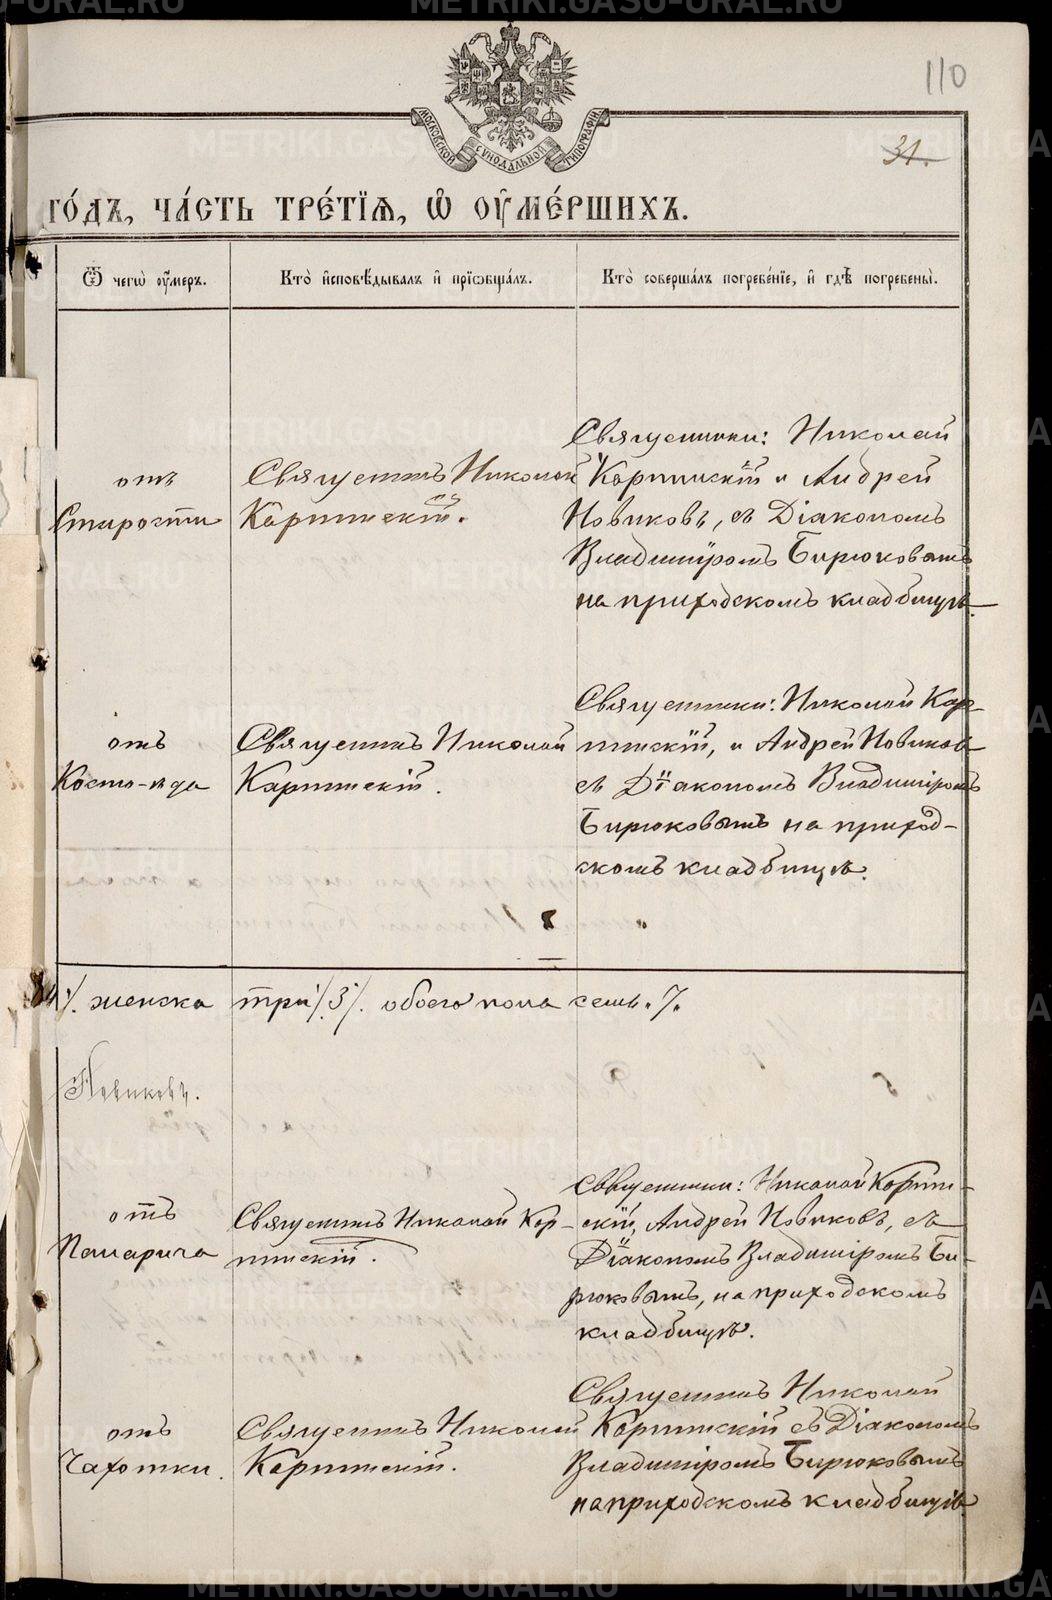 110
31.
МОСКОВСКОЙ СѴНОДАЛЬНОЙ ТИПОГРАФІИ
го́дъ, ча́сть тре́тїѧ, ѡ҆ ᲂу҆ме́ршихъ.
Ѿ чегѡ̀ ᲂу҆́меръ.
Кто̀ и҆сповѣ́дывалъ и҆ прїѡбща́лъ.
Кто̀ соверша́лъ погребе́нїе, и҆ гдѣ̀ погребены̀.
отъ
Старости
Священникъ Николай
Карпинскій.
Священники: Николай
Карпинскій и Андрей
Новиковъ, съ Діакономъ
Владиміромъ Бирюковымъ
на приходскомъ кладбищѣ.
отъ
Косто-ѣда
Священникъ Николай
Карпинскій.
Священники: Николай Кар-
пинскій, и Андрей Новиковъ
съ Діакономъ Владиміромъ
Бирюковымъ на приход-
скомъ кладбищѣ.
женска три /3/. обоего пола семь. 7.
Новиковъ.
отъ
Священникъ Николай Кар-
пинскій.
Священники: Николай Карпин-
скій, Андрей Новиковъ, съ
Діакономъ Владиміромъ Би-
рюковымъ, на приходскомъ
кладбищѣ.
отъ
Чахотки.
Священникъ Николай
Карпинскій.
Священникъ Николай
Карпинскій съ Діакономъ
Владиміромъ Бирюковымъ
на приходскомъ кладбищѣ.
METRIKI.GASO-URAL.RU